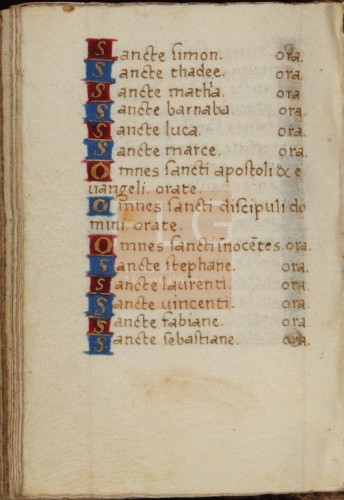 Sancte simon. ora.
Sancte thadee. ora.
Sancte mathia. ora.
Sancte barnaba. ora.
Sancte luca. ora.
Sancte marce. ora.
Omnes sancti apostoli & e
uangeli. orate.
Omnes sancti discipuli do
mini orate.
Omnes sancti īnocētes. ora.
Sancte stephane. ora.
Sancte laurenti. ora.
Sancte uincenti. ora.
Sancte fabiane. ora.
Sancte sebastiane. ora.